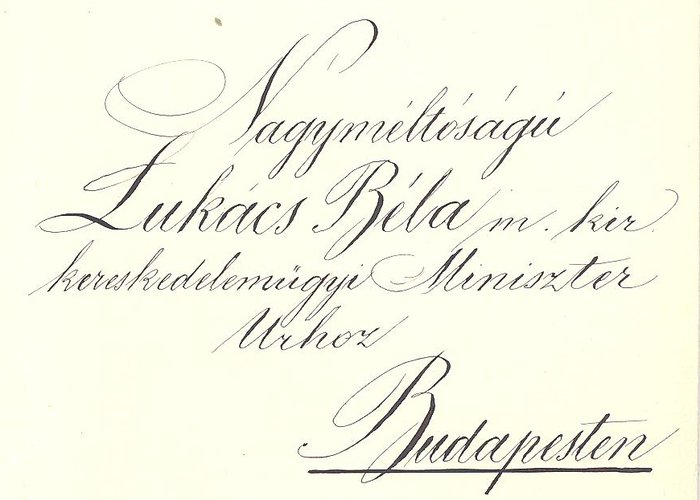 Nagyméltóságú
Lukács Béla m. kir.
kereskedelemügyi Miniszter
Urhoz
Budapesten